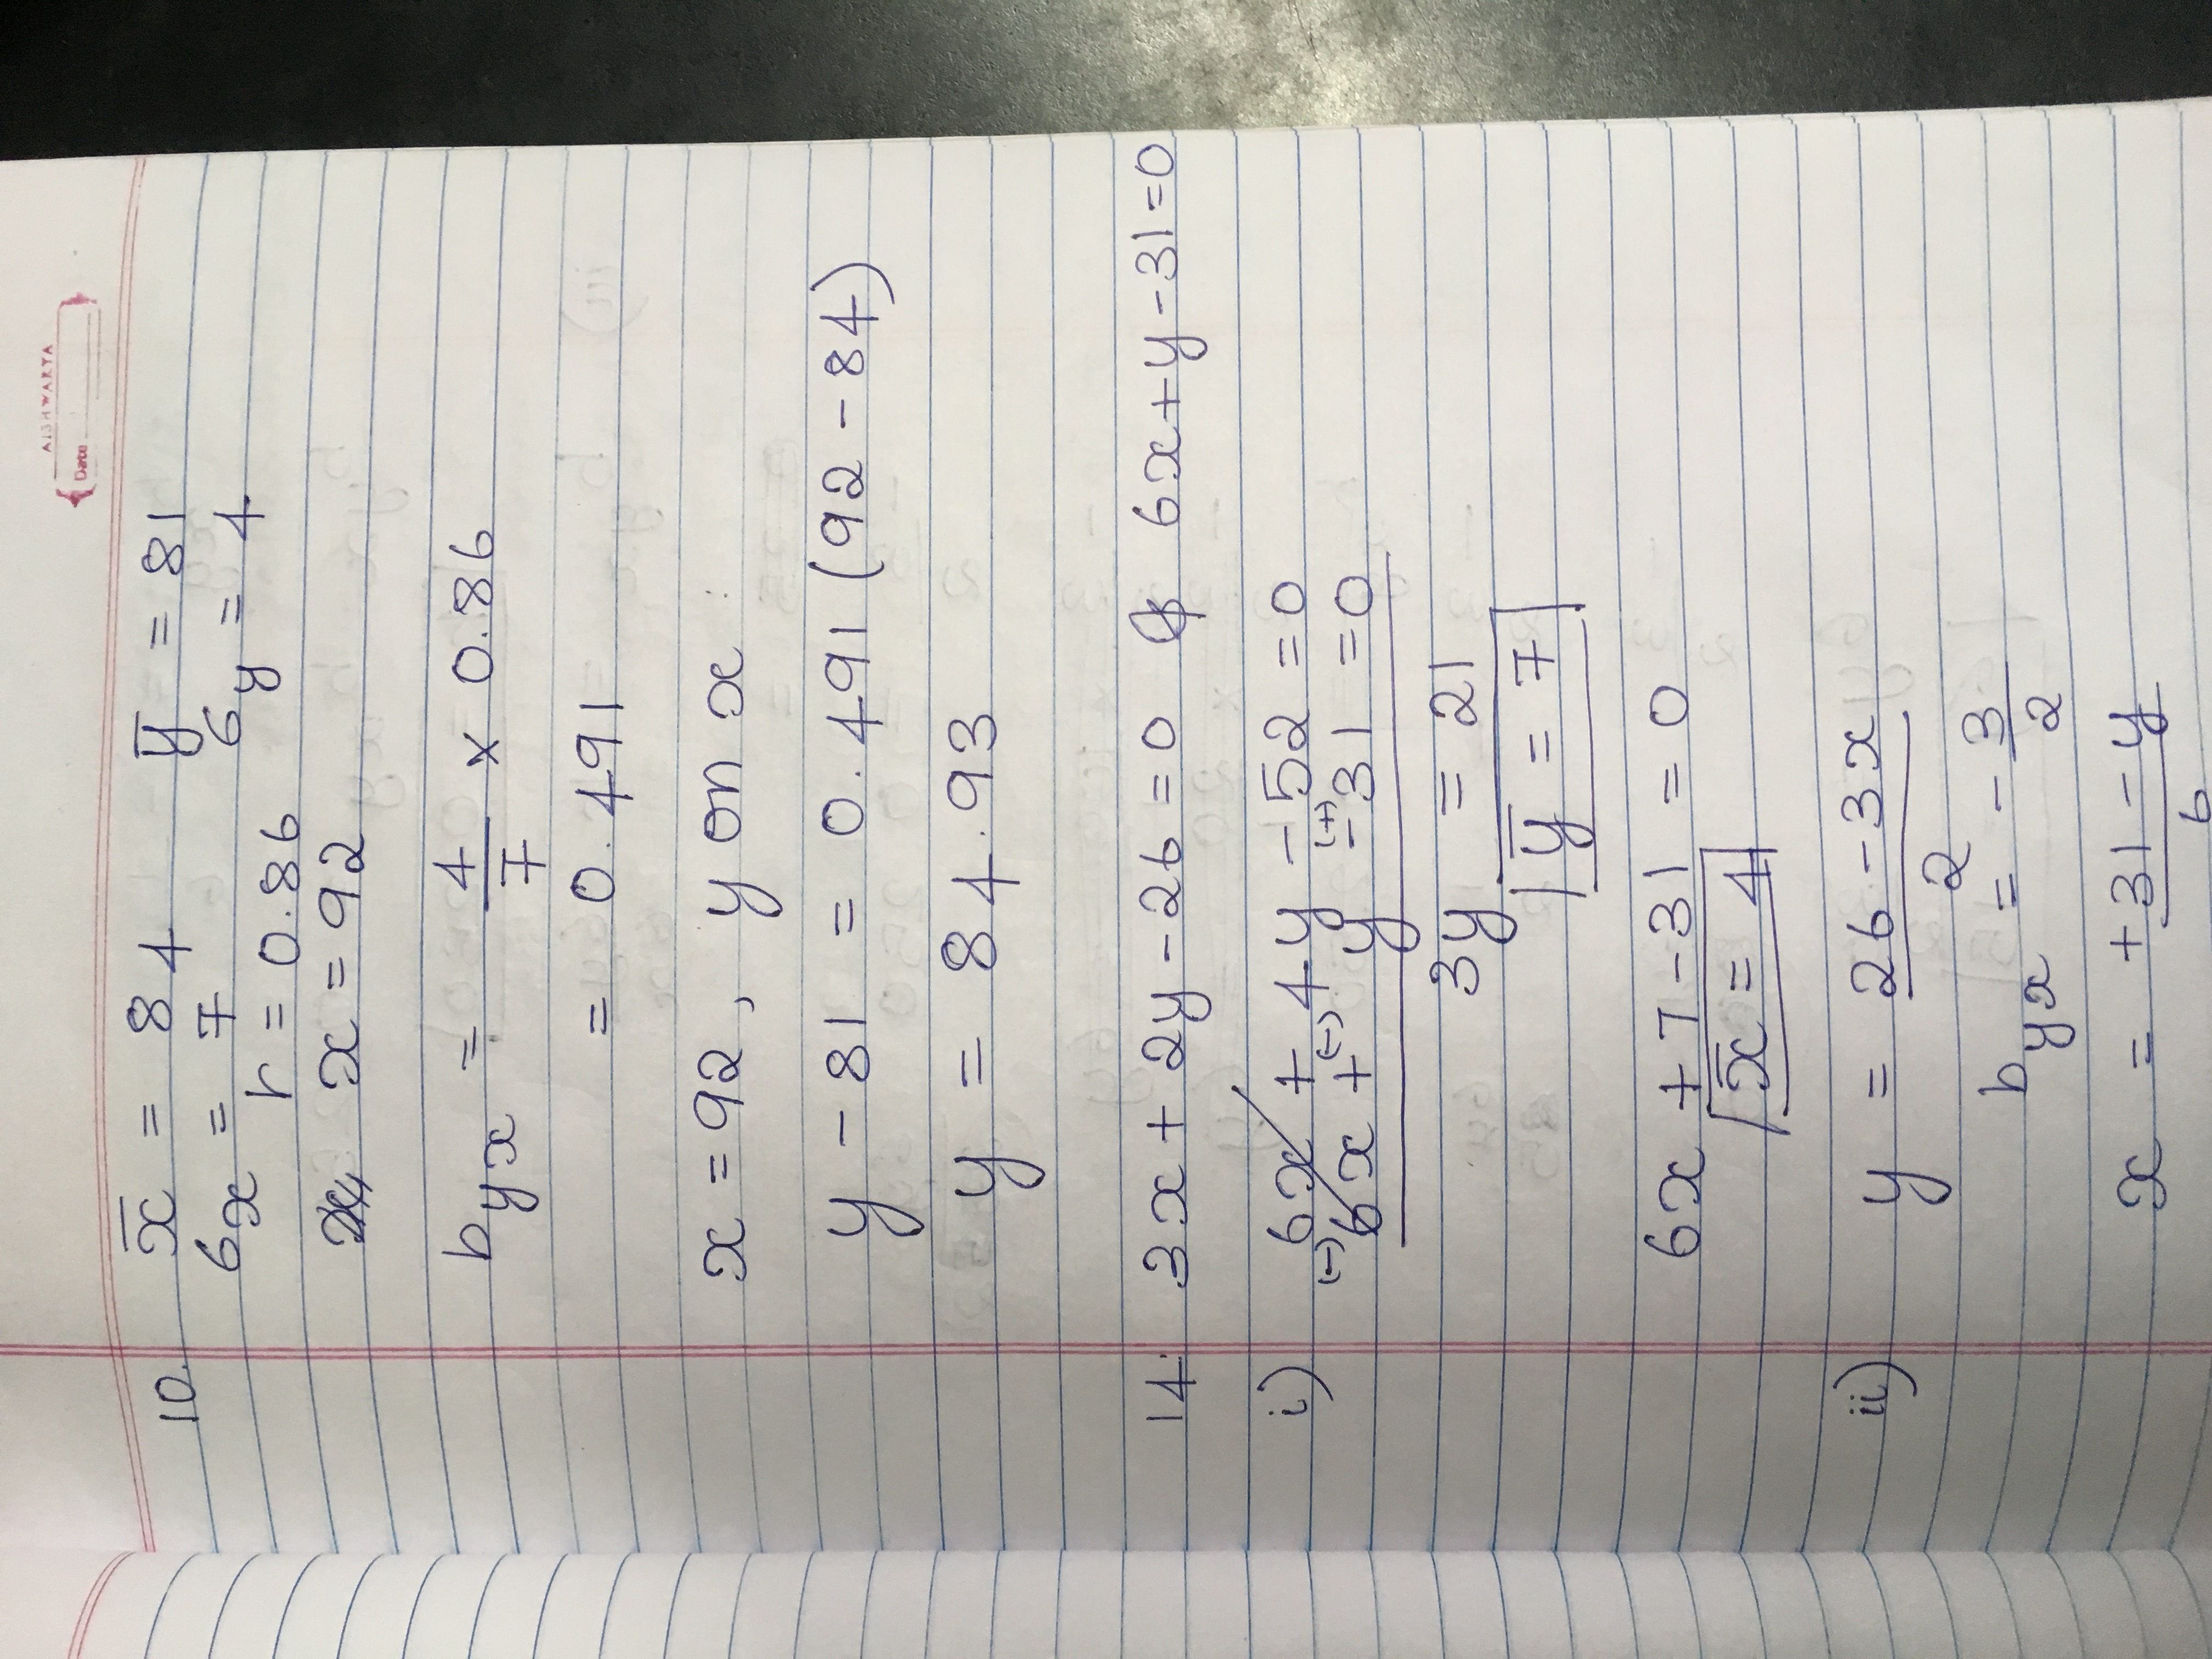 AISHWARYA
Date
10. x̄ = 84 ȳ = 81
σx = 7 σy = 4
r = 0.86
x = 92
byx = 4/7 × 0.86
= 0.491
x = 92, y on x :
y - 81 = 0.491 (92 - 84)
y = 84.93
14. 3x + 2y - 26 = 0 & 6x + y - 31 = 0
i) 6x + 4y - 52 = 0
(-) (-) (+)
6x + y - 31 = 0
3y = 21
ȳ = 7
6x + 7 - 31 = 0
x̄ = 4
ii) y = 26 - 3x / 2
byx = - 3/2
x = +31 - y / 6